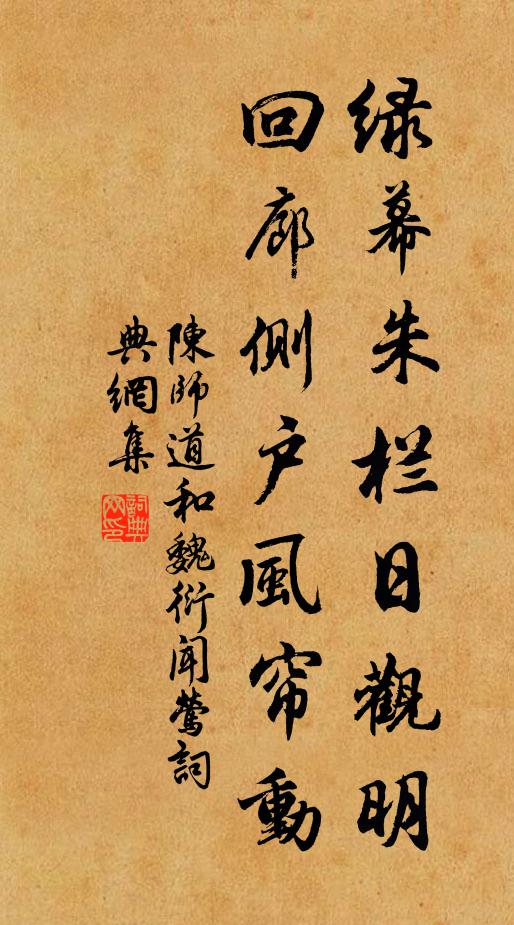 绿幕朱栏日觀明
回廊側户風帘動
陳師道和魏衍聞鶯詞
典網集
詞典
網印